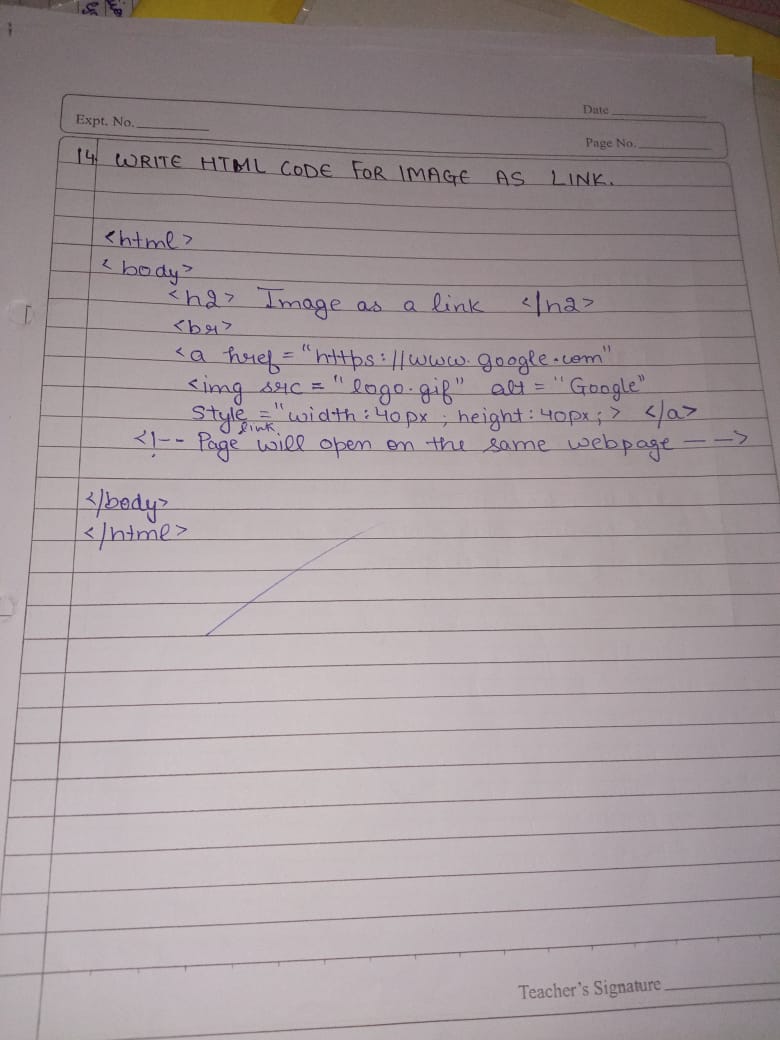 Date
Expt. No.
Page No.
14. WRITE HTML CODE FOR IMAGE AS LINK.
<html>
<body>
<h2> Image as a link </h2>
<br>
<a href = "https://www.google.com"
<img src = "logo.gif" alt = "Google"
Style = "width:40px; height:40px;> </a>
<!-- Page link will open on the same webpage -->
</body>
</html>
Teacher's Signature